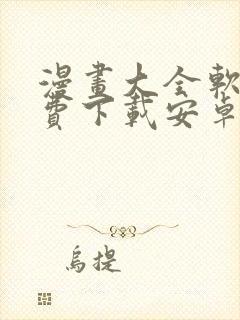 漫畫大全軟
費下載安卓
烏提